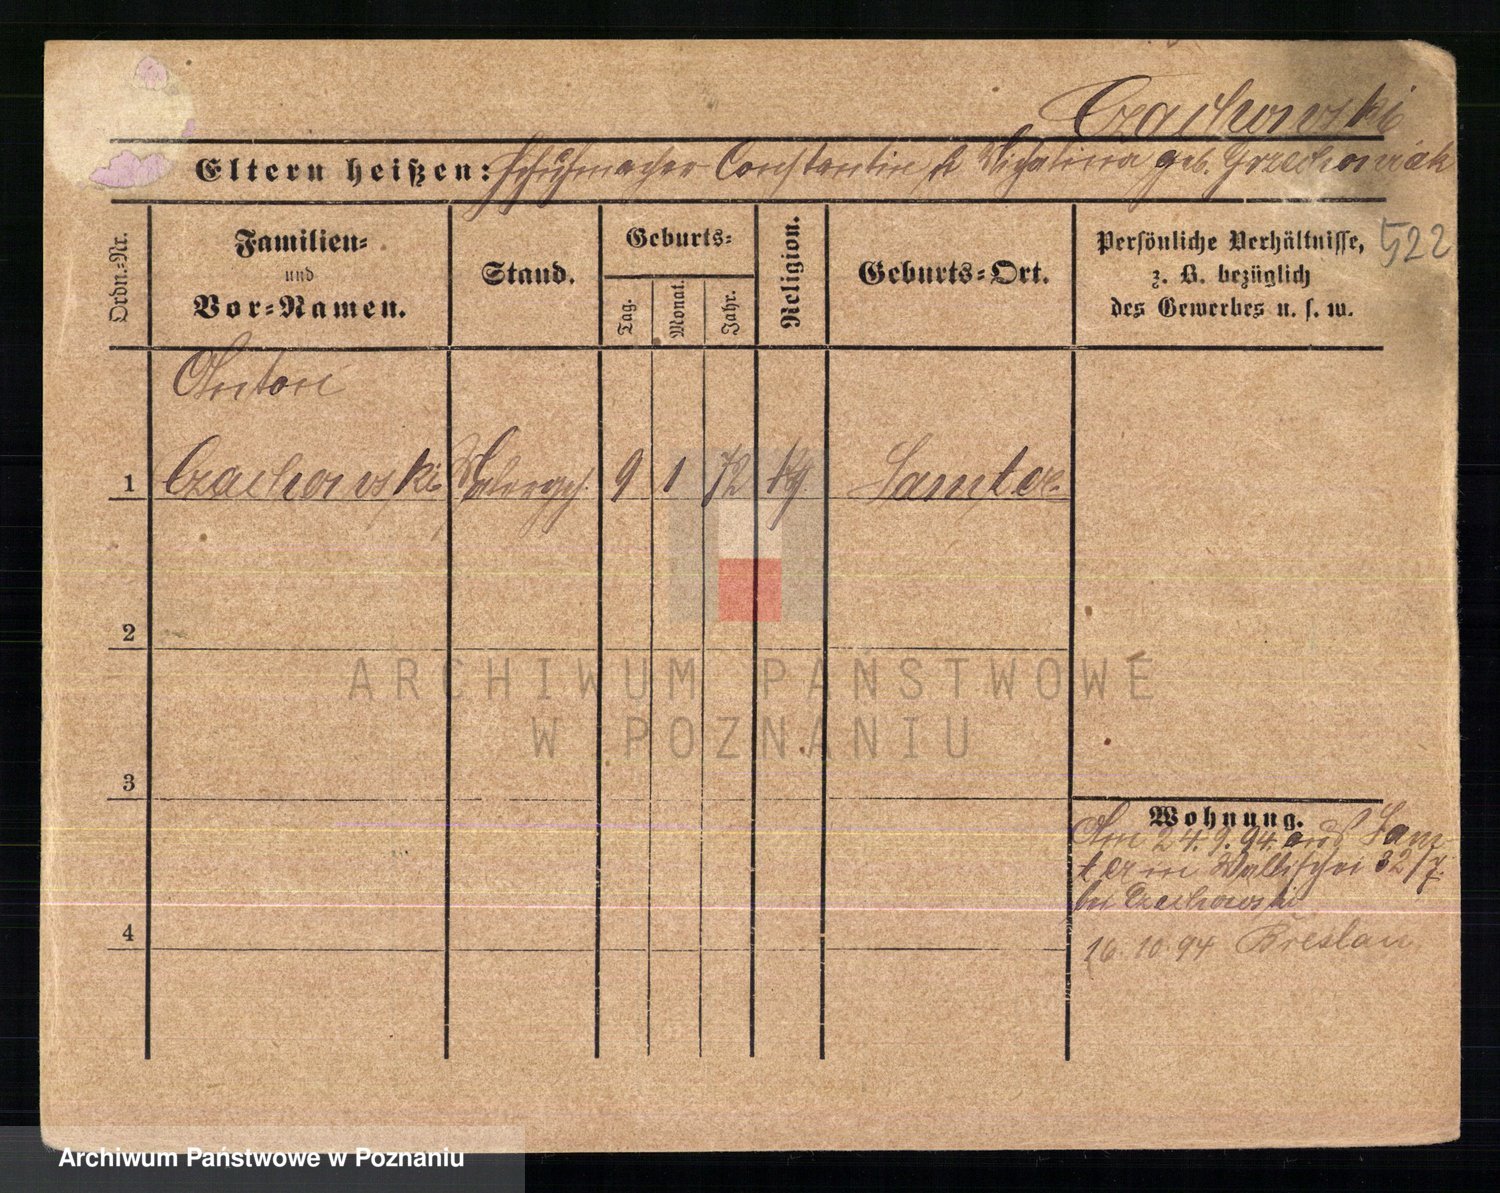 Czachowski
Eltern heißen: Schuhmacher Constantin & geb. Grzechowiak
522
Ordn.-Nr.
Familien-
und
Vor-Namen.
Stand.
Geburts-
Tag.
Monat.
Jahr.
Religion.
Geburts-Ort.
Persönliche Verhältnisse,
z. B. bezüglich
des Gewerbes u. s. w.
Anton
1 Czachowski 9 1 72 kg Samter
2
ARCHIWUM PAŃSTWOWE
W POZNANIU
3
Wohnung.
Am 24.9.94 aus Sam
ter in Wallischei 32/7.
bei Czachowski
4
16.10.94 Breslau
Archiwum Państwowe w Poznaniu